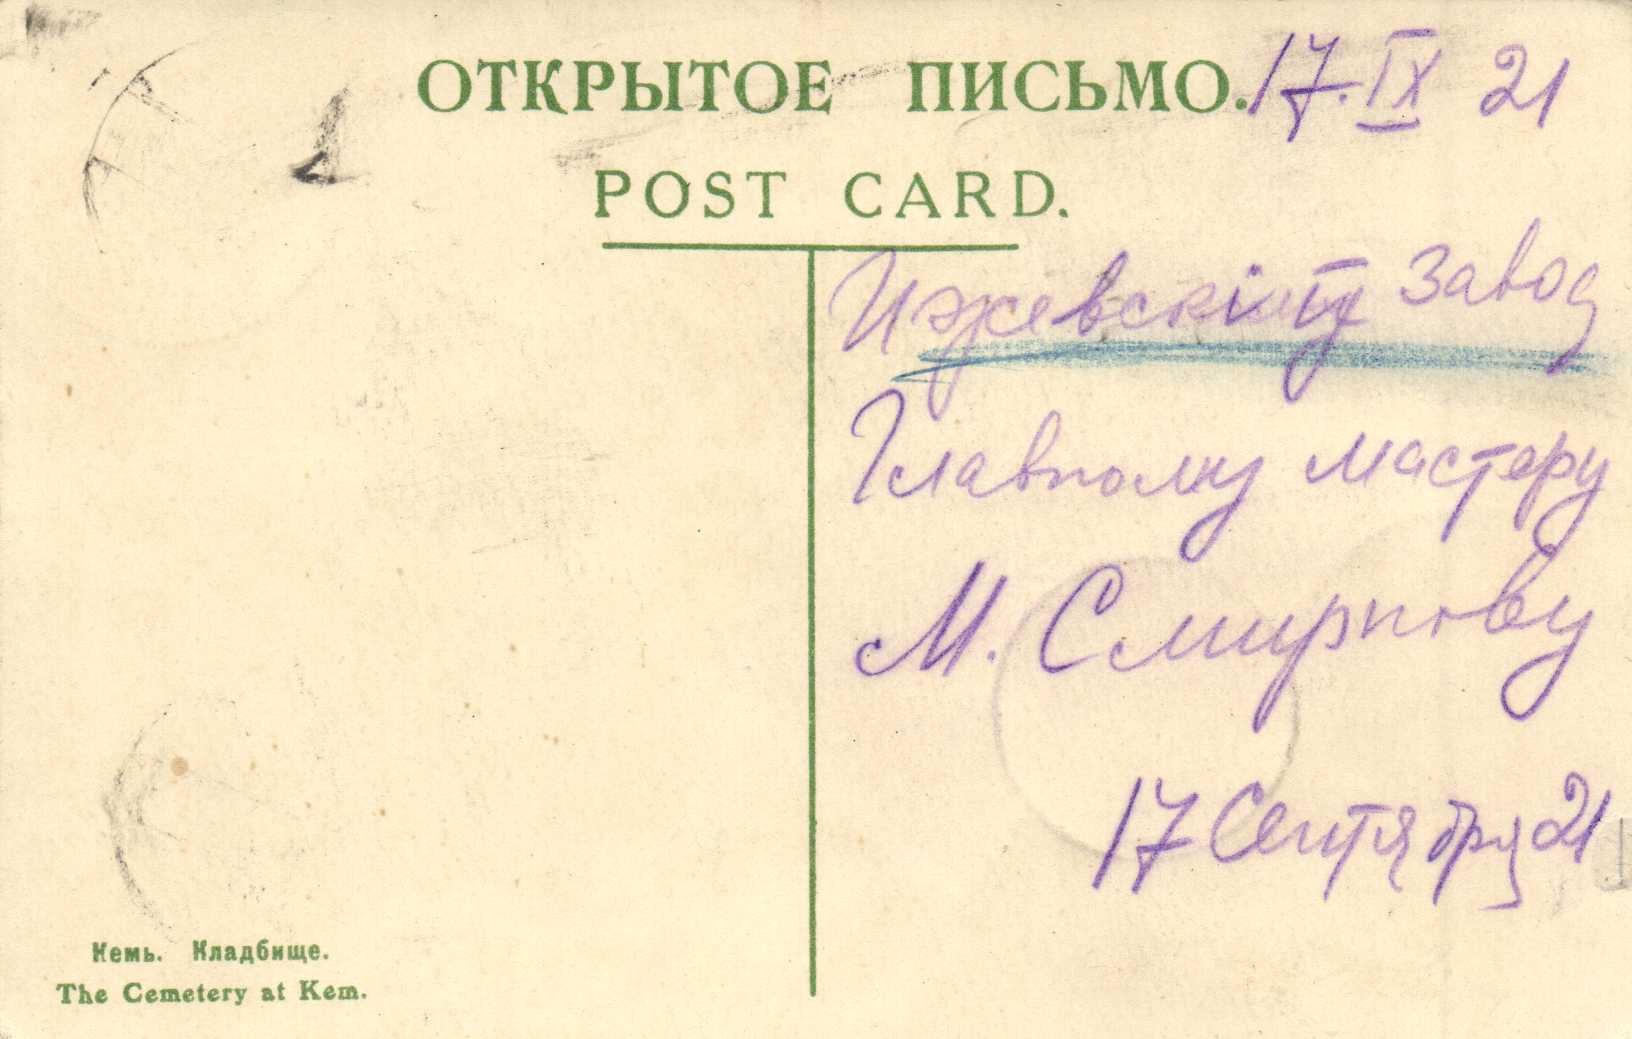 ОТКРЫТОЕ ПИСЬМО.
17. IX 21
POST CARD.
Завод
Главному мастеру
М. Смирнову
17 Сентября 21
Кемь. Кладбище.
The Cemetery at Kem.